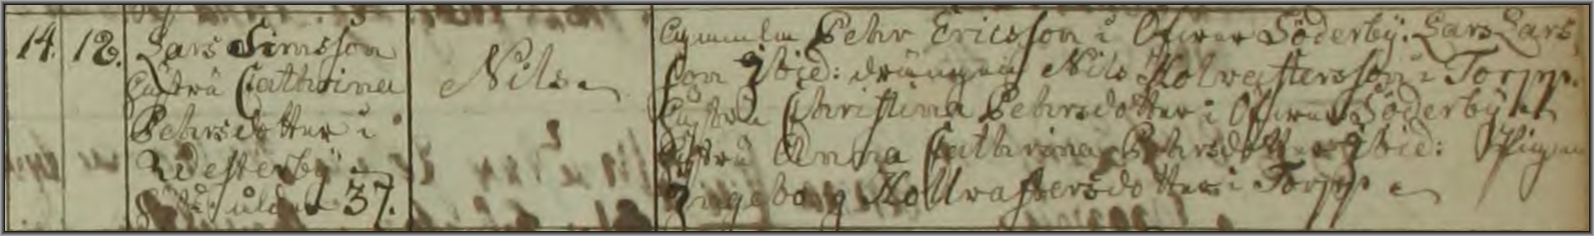 14. 18. Lars Simsson
hustru Cathrina
Pehrsdotter i
Westerbÿ
ålder 37.
Nils
Pehr Ericsson i Ofwer Söderbÿ. Lars Lars
son ibid: drängen Nils Holwastersson i Torpp.
hustru Christina Pehrsdotter i Ofwer Söderbÿ
hustru Anna Cathrina Pehrsdotter ibid: Pigan
Ingeborg Hollwastersdotter i Torpp